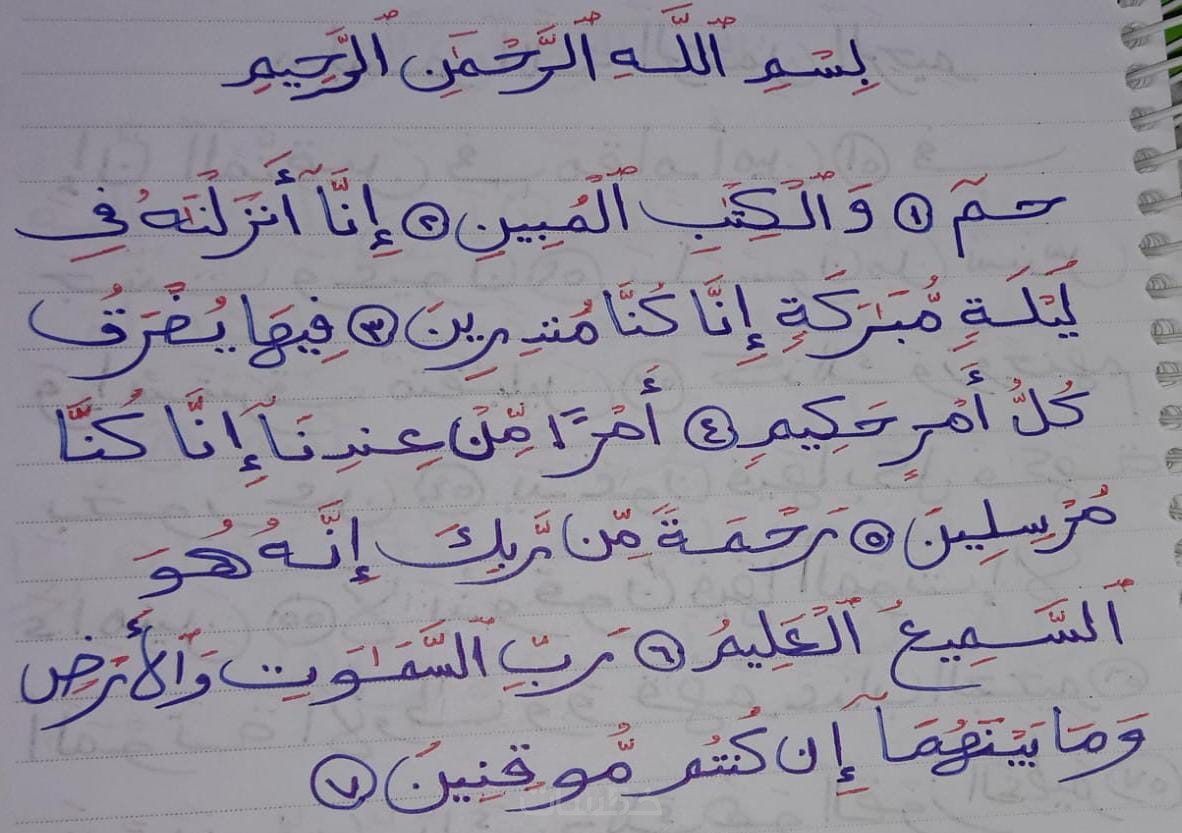 بِسْمِ ٱللَّهِ ٱلرَّحْمَٰنِ ٱلرَّحِيمِ
حمٓ ١ وَٱلْكِتَٰبِ ٱلْمُبِينِ ٢ إِنَّآ أَنزَلْنَٰهُ فِى
لَيْلَةٍ مُّبَٰرَكَةٍ إِنَّا كُنَّا مُنذِرِينَ ٣ فِيهَا يُفْرَقُ
كُلُّ أَمْرٍ حَكِيمٍ ٤ أَمْرًا مِّنْ عِندِنَآ إِنَّا كُنَّا
مُرْسِلِينَ ٥ رَحْمَةً مِّن رَّبِّكَ إِنَّهُ هُوَ
ٱلسَّمِيعُ ٱلْعَلِيمُ ٦ رَبِّ ٱلسَّمَٰوَٰتِ وَٱلْأَرْضِ
وَمَا بَيْنَهُمَآ إِن كُنتُم مُّوقِنِينَ ٧